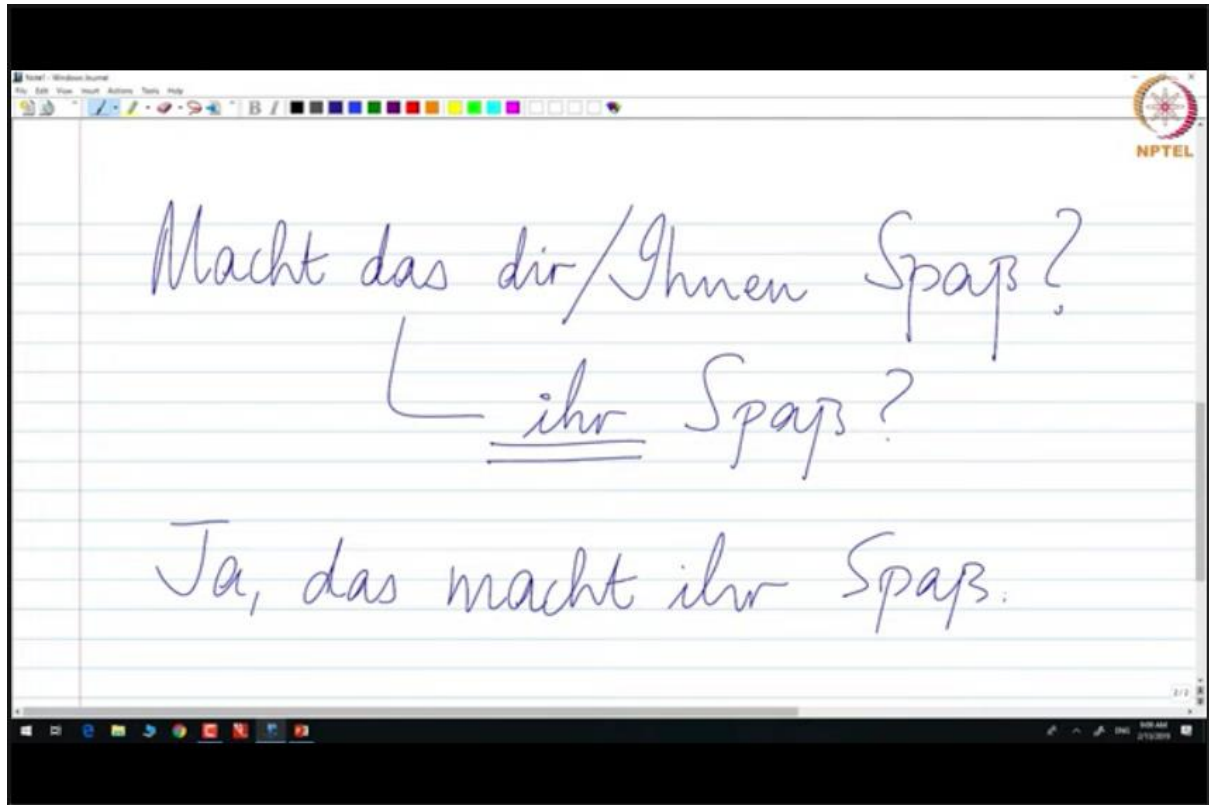 Note1 - Windows Journal
File Edit View Insert Actions Tools Help
B I
NPTEL
Macht das dir/Ihnen Spaß?
ihr Spaß?
Ja, das macht ihr Spaß.
2/2
ENG 9:09 AM
2/13/2019